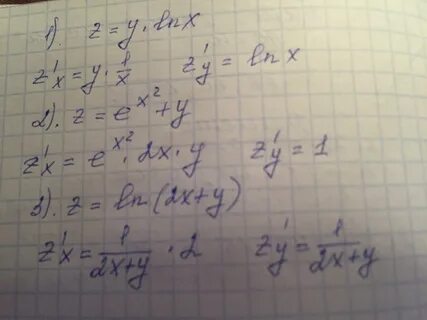 1). z = y · ln x
z'x = y · 1/x   z'y = ln x
2). z = e^x² + y
z'x = e^x² · 2x · y   z'y = 1
3). z = ln (2x+y)
z'x = 1/(2x+y) · 2   z'y = 1/(2x+y)